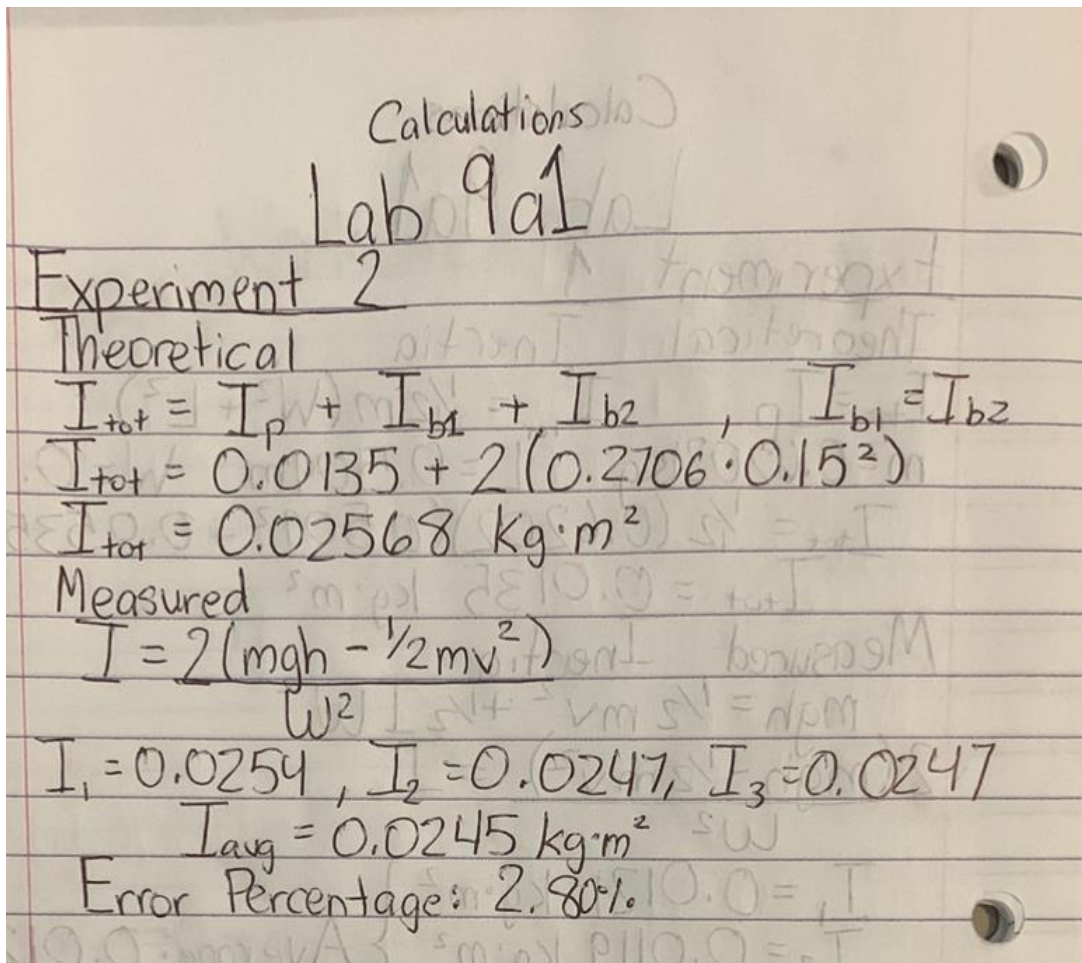 Calculations
Lab 9a1
Experiment 2
Theoretical
I_tot = I_p + I_b1 + I_b2 , I_b1 = I_b2
I_tot = 0.0135 + 2(0.2706·0.15²)
I_tot = 0.02568 kg·m²
Measured
I = 2(mgh - 1/2mv²)
ω²
I₁ = 0.0254, I₂ = 0.0247, I₃ = 0.0247
I_avg = 0.0245 kg·m²
Error Percentage: 2.80%